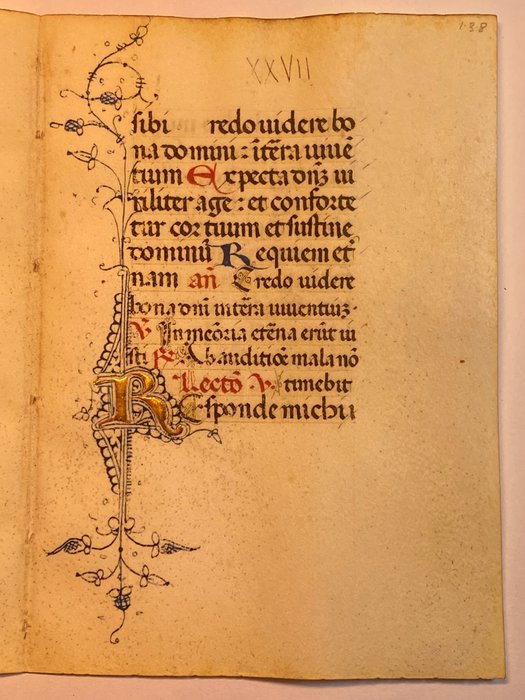 138
XXVII
sibi redo uidere bo
na domini : ītēra uiuē
tium Expecta dnȝ ui
riliter age : et conforte
tur cor tuum et sustine
dominū Requiem etˀ
nam añ Credo uidere
bona dnī in tēra uiuentiuȝ ·
℣ In meōria etēna erūt iu
sti ℟ Ab auditiōe mala nō
Lectō ℣ timebit
Responde michi i